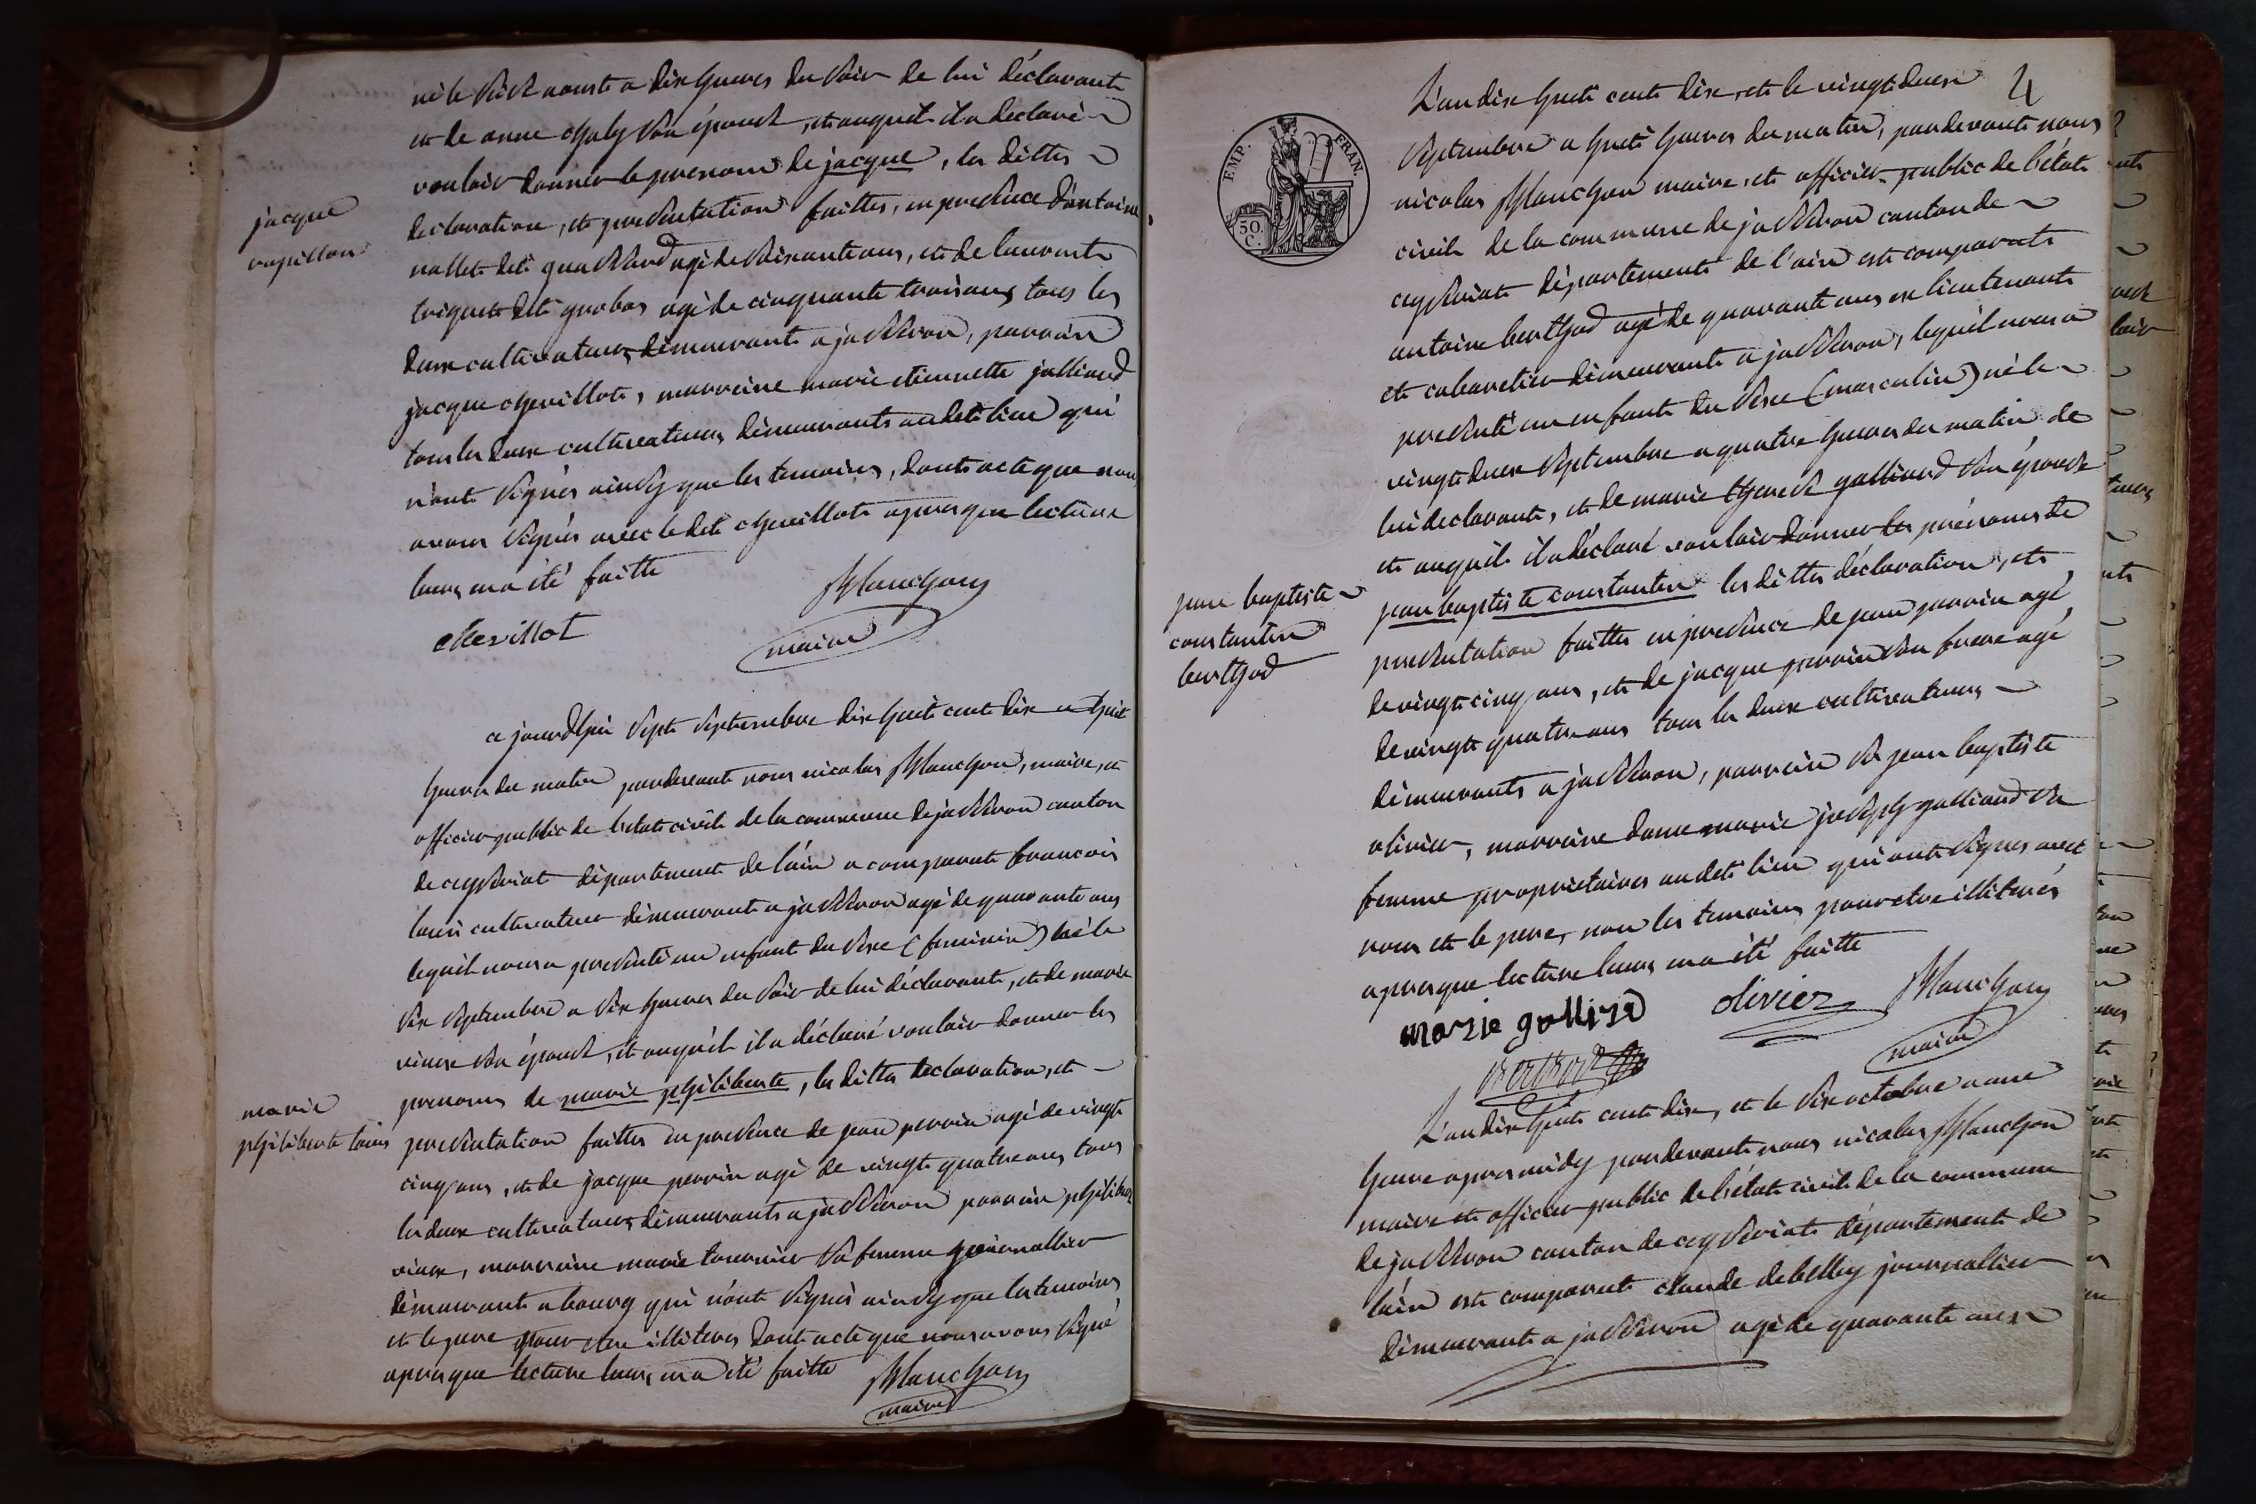 né le seize aouste a dix heures du soir de lui déclarant
et de anne chaly son épouse, et auquel il a declaré
vouloir donner le prenom de jacque, les dittes
declaration, et presentation faittes, en presence d'antoine
nallet dit quassard agé de soixante ans, et de laurent
triquet dit grobas agé de cinquante trois ans tous les
deux cultivateurs demeurants a jasseron, parrain
jacque chevillot, marreine marie etiennette jalliard
tous les deux cultivateurs demeurants audit lieu qui
n'ont signés ainsy que les temoins, dont acte que nous
avons signés avec le dit chevillot apres que lecture
leurs en a été faitte
jacque
rapillon
chevillot
Planchon
maire
ce jourdhui sept septembre dix huit cent dix a huit
heures du matin pardevant nous nicolas Planchon, maire, et
officier public de l'etat civil de la commune de jasseron canton
de ceyseriat département de l'ain a comparut francois
louis cultivateur demeurant a jasseron agé de quarante ans
lequel nous a presenté un enfant du sexe (feminin) né le
six septembre a six heures du soir de lui déclarant, et de marie
vieux son épouse, et auquel il a déclaré vouloir donner les
prenoms de marie philiberte, les dittes declaration, et
presentation faittes en presence de jean perrin agé de vingt
cinq ans, et de jacque perrin agé de vingt quatre ans tous
les deux cultivateurs demeurants a jasseron parrain philibert
vieux, marreine marie tournier sa femme journallier
demeurant a bourg qui n'ont signés ainsy que les temoins
et le pere pour etre illiteres dont acte que nous avons signé
apres que lecture leurs en a été faitte
marie
philiberte louis
Planchon
maire
4
EMP. FRAN.
50.
C.
L'an dix huit cent dix, et le vingt deux
septembre a huit heures du matin, pardevant nous
nicolas Planchon maire, et officier public de l'état
civil de la commune de jasseron canton de
ceyseriat département de l'ain est comparut
antoine berthod agé de quarante ans ex lieutenant
et cabaretier demeurant a jasseron, lequel nous a
presenté un enfant du sexe (masculin) né le
vingt deux septembre a quatre heures du matin de
lui declarant, et de marie therese galliard son épouse
et auquel il a déclaré vouloir donner les prénoms de
jean baptiste constantin les dittes déclaration, et
presentation faittes en presence de jean perrin agé
de vingt cinq ans, et de jacque perrin son frere agé
de vingt quatre ans tous les deux cultivateurs
demeurants a jasseron, parrain sr jean baptiste
olivier, marreine dame marie joseph galliard sa
femme proprietaires au dit lieu qui ont signés avec
nous et le pere, non les temoins pour etre illiterés
apres que lecture leurs en a été faitte
jean baptiste
constantin
berthod
marie gallird
olivier
Planchon
maire
berthod
L'an dix huit cent dix, et le six octobre a une
heure apres midy pardevant nous nicolas Planchon
maire et officier public de l'état civil de la commune
de jasseron canton de ceyseriat département de
l'ain est comparut claude debelley journallier
demeurant a jasseron agé de quarante ans